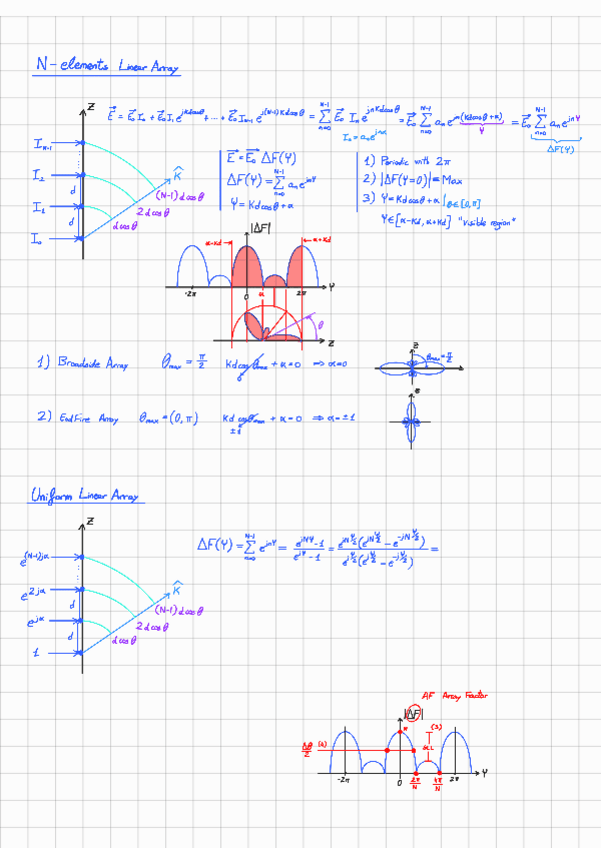 N-elements Linear Array
Z
E = E₀I₀ + E₀I₁ e^{jKdcosθ} + ... + E₀I_{N-1} e^{j(N-1)Kdcosθ} = Σ_{n=0}^{N-1} E₀ Iₙ e^{jnKdcosθ} = E₀ Σ_{n=0}^{N-1} aₙ e^{jn(Kdcosθ+α)} = E₀ Σ_{n=0}^{N-1} aₙ e^{jnΨ}
Ψ
ΔF(Ψ)
I_{N-1}
I₂
I₁
I₀
d
d
K
(N-1)dcosθ
2dcosθ
dcosθ
E = E₀ ΔF(Ψ)
ΔF(Ψ) = Σ_{n=0}^{N-1} aₙ e^{jnΨ}
Ψ = Kdcosθ + α
1) Periodic with 2π
2) |ΔF(Ψ=0)| = Max
3) Ψ = Kdcosθ + α |θ∈[0,π]
Ψ∈[α-Kd, α+Kd] "visible region"
|ΔF|
α-Kd
α+Kd
-2π
0
α
2π
Ψ
θ
Z
1) Broadside Array θmax = π/2 Kdcosθmax + α = 0 ⇒ α=0
Z
θmax = π/2
2) EndFire Array θmax = (0,π) Kd cosθmax + α = 0 ⇒ α = ±1
±1
Uniform Linear Array
Z
ΔF(Ψ) = Σ_{n=0}^{N-1} e^{jnΨ} = (e^{jNΨ} - 1)/(e^{jΨ} - 1) = e^{jNΨ/2}(e^{jNΨ/2} - e^{-jNΨ/2})/e^{jΨ/2}(e^{jΨ/2} - e^{-jΨ/2}) =
e^{(N-1)jα}
e^{2jα}
e^{jα}
1
d
d
K
(N-1)dcosθ
2dcosθ
dcosθ
AF Array Factor
|ΔF|
(3)
SLL
(2)
-2π
0
2π/N
4π/N
2π
Ψ